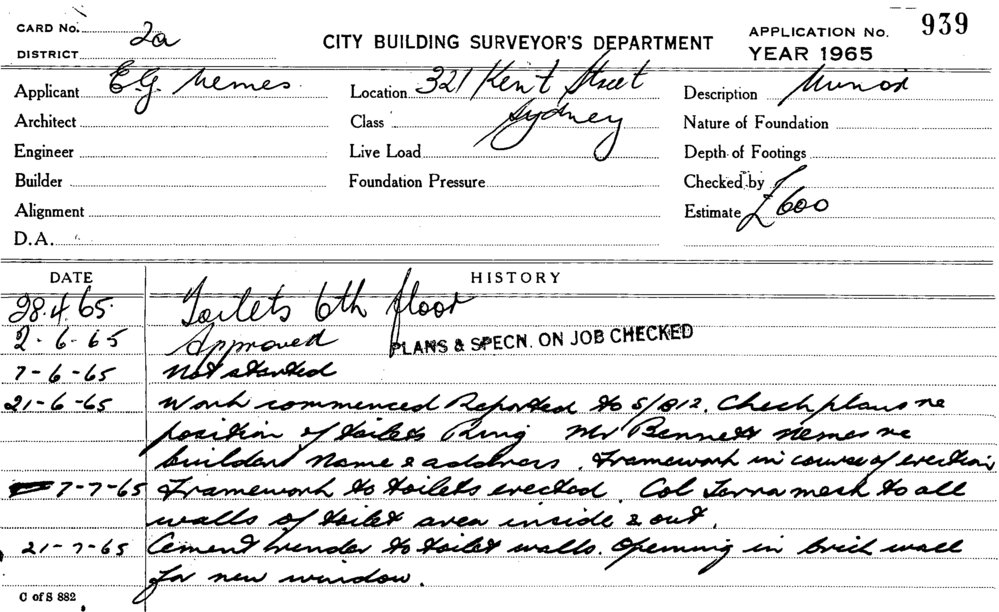 CARD No. 2a
DISTRICT
CITY BUILDING SURVEYOR'S DEPARTMENT
APPLICATION No. 939
YEAR 1965
Applicant E.G. Nemes
Location 321 Kent Street
Sydney
Description Minor
Architect
Class
Nature of Foundation
Engineer
Live Load
Depth of Footings
Builder
Foundation Pressure
Checked by
Alignment
Estimate £600
D.A.
DATE HISTORY
28.4.65. Toilets 6th floor
2-6-65 Approved PLANS & SPECN. ON JOB CHECKED
7-6-65 Not started
21-6-65 Work commenced Reported to S/812. Check plans re
position of toilets Ring Mr Bennett Nemes re
builders Name & address. Framework in course of erection
7-7-65 Framework to toilets erected. Col Terra mesh to all
walls of toilet area inside & out.
21-7-65 Cement render to toilet walls. Opening in brick wall
for new window.
C of S 882